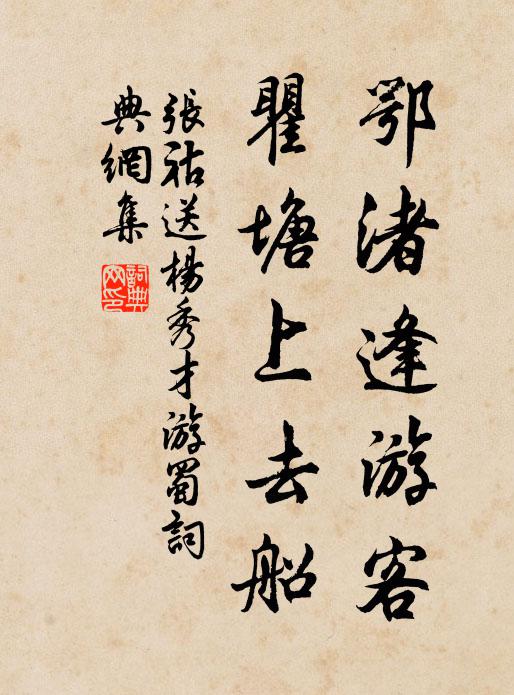 鄂渚逢游客
瞿塘上去船
張祜送楊秀才游蜀詞
典網集
詞典网印